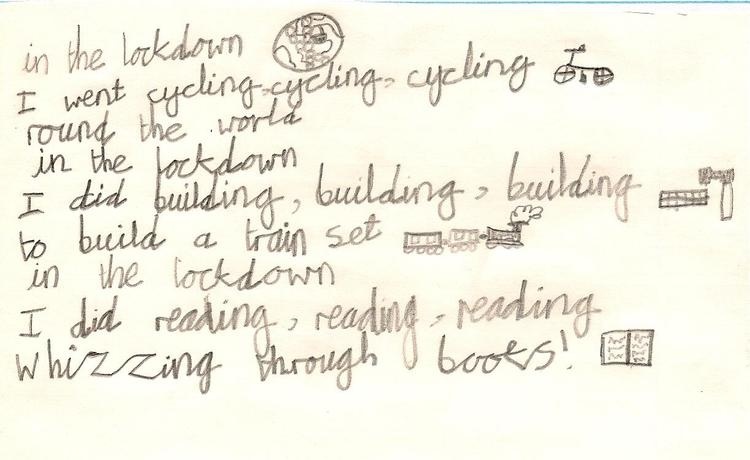 in the lockdown
I went cycling, cycling, cycling
round the world
in the lockdown
I did building, building, building
to build a train set
in the lockdown
I did reading, reading, reading
whizzing through books!